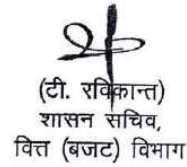 (टी. रविकान्त)
शासन सचिव,
वित्त (बजट) विभाग